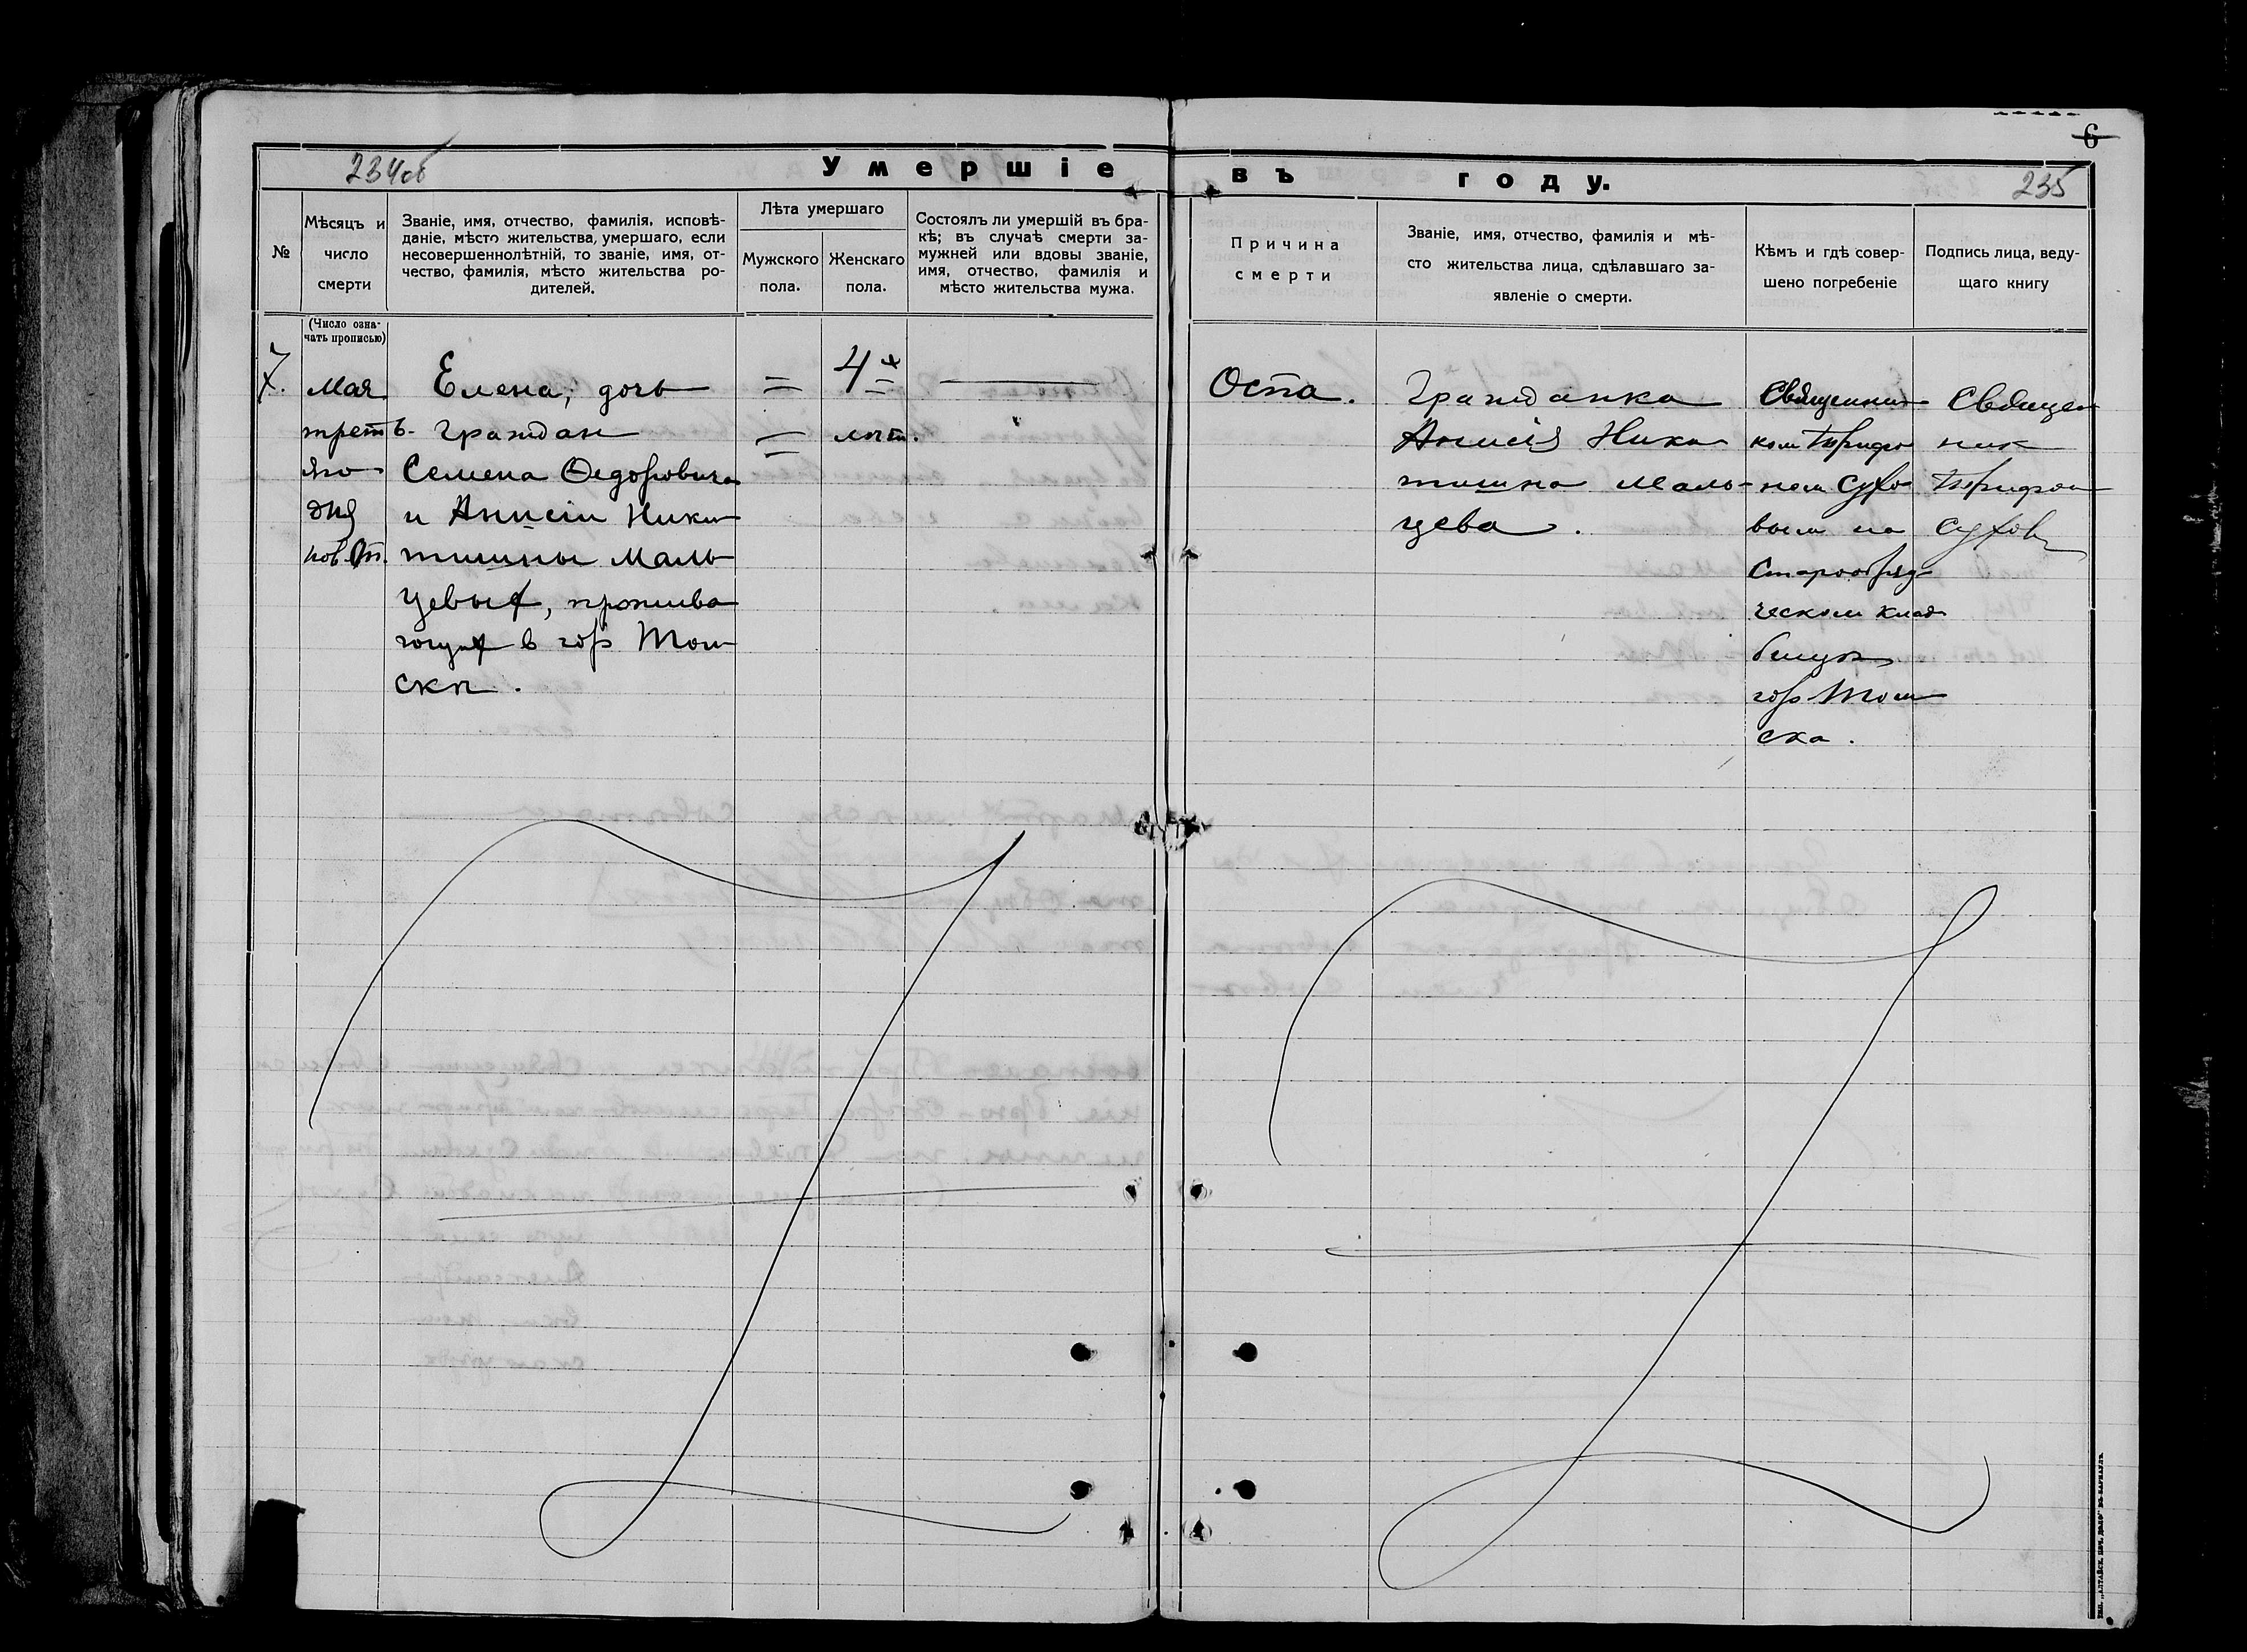 6
234об
Умершіе
въ году.
235
№
Мѣсяцъ и
число
смерти
Званіе, имя, отчество, фамилія, исповѣ-
даніе, мѣсто жительства, умершаго, если
несовершеннолѣтній, то званіе, имя, от-
чество, фамилія, мѣсто жительства ро-
дителей.
Лѣта умершаго
Мужского
пола.
Женскаго
пола.
Состоялъ ли умершій въ бра-
кѣ; въ случаѣ смерти за-
мужней или вдовы званіе,
имя, отчество, фамилія и
мѣсто жительства мужа.
Причина
смерти
Званіе, имя, отчество, фамилія и мѣ-
сто жительства лица, сдѣлавшаго за-
явленіе о смерти.
Кѣмъ и гдѣ совер-
шено погребеніе
Подпись лица, веду-
щаго книгу
(Число озна-
чать прописью)
7.
Мая
треть-
яго
дня
нов. ст.
Елена, дочь
граждан
Семена Ѳедоровича
и Анисіи Ники
тишны Маль
цевых, прожива
ющих в гор Том
скѣ.
4 х
лѣт.
Оспа.
Гражданка
Анисія Ники
тишна Маль-
цева.
Священни-
ком Трифо
ном Сухо
вым на
Старообряд-
ческом клад
бищѣ
гор Том
ска.
Священ
ник
Трифон
Сухов
Тип. „Алтайск. Печ. Дѣло“ въ Барнаулѣ.